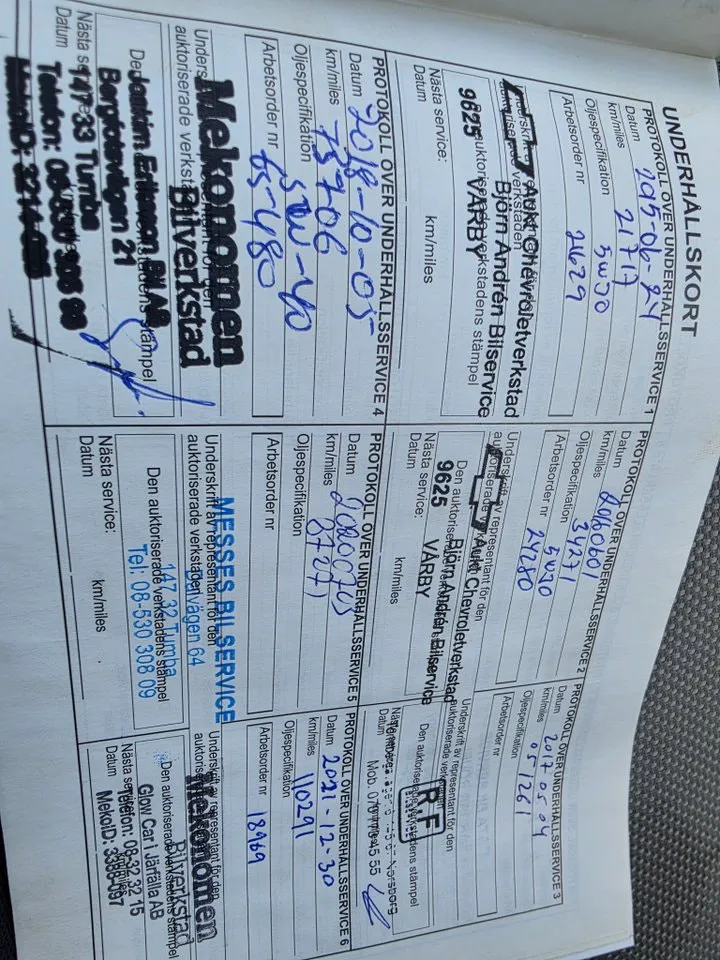 UNDERHÅLLSKORT
PROTOKOLL ÖVER UNDERHÅLLSSERVICE 1
Datum 295-06-24
km/miles 21717
Oljespecifikation 5W30
Arbetsorder nr 2429
Underskrift
auktoriserade verkstaden
Aukt Chevroletverkstad
Björn Andrén Bilservice
9625 VÅRBY
auktoriserade verkstadens stämpel
Nästa service:
Datum km/miles
PROTOKOLL ÖVER UNDERHÅLLSSERVICE 2
Datum 20160601
km/miles 34271
Oljespecifikation 5W30
Arbetsorder nr 24280
Underskrift av representant för den
auktoriserade verkstaden
Aukt Chevroletverkstad
Den auktoriserade
Björn Andrén Bilservice
9625 VÅRBY
Nästa service:
Datum km/miles
PROTOKOLL ÖVER UNDERHÅLLSSERVICE 3
Datum 2017 05 04
km/miles 051261
Oljespecifikation
Arbetsorder nr
Underskrift av representant för den
auktoriserade verkstaden
R.F
Den auktoriserade verkstadens stämpel
Nästa service:
Datum
Norsborg
Mob. 55
PROTOKOLL ÖVER UNDERHÅLLSSERVICE 4
Datum 2018-10-05
km/miles 73706
Oljespecifikation 5W-40
Arbetsorder nr 65-480
Underskrift
auktoriserade verkstaden
Mekonomen
Bilverkstad
Bil AB
Bergfotsvägen 21
147 33 Tumba
Telefon: 08-530
MekoID: 3214
verkstadens stämpel
Nästa service:
Datum
PROTOKOLL ÖVER UNDERHÅLLSSERVICE 5
Datum 20200703
km/miles 87271
Oljespecifikation
Arbetsorder nr
Underskrift av representant för den
auktoriserade verkstaden
MESSES BILSERVICE
Dalvägen 64
147 32 Tumba
Tel: 08-530 308 09
Den auktoriserade verkstadens stämpel
Nästa service:
Datum km/miles
PROTOKOLL ÖVER UNDERHÅLLSSERVICE 6
Datum 2021-12-30
km/miles 110291
Oljespecifikation
Arbetsorder nr 18969
Underskrift av representant för den
auktoriserade
Mekonomen
Bilverkstad
Den auktoriserade verkstadens stämpel
Glow Car I Järfälla AB
Nästa service:
Telefon: 08-32 32 15
Datum
MekoID: 3388-097